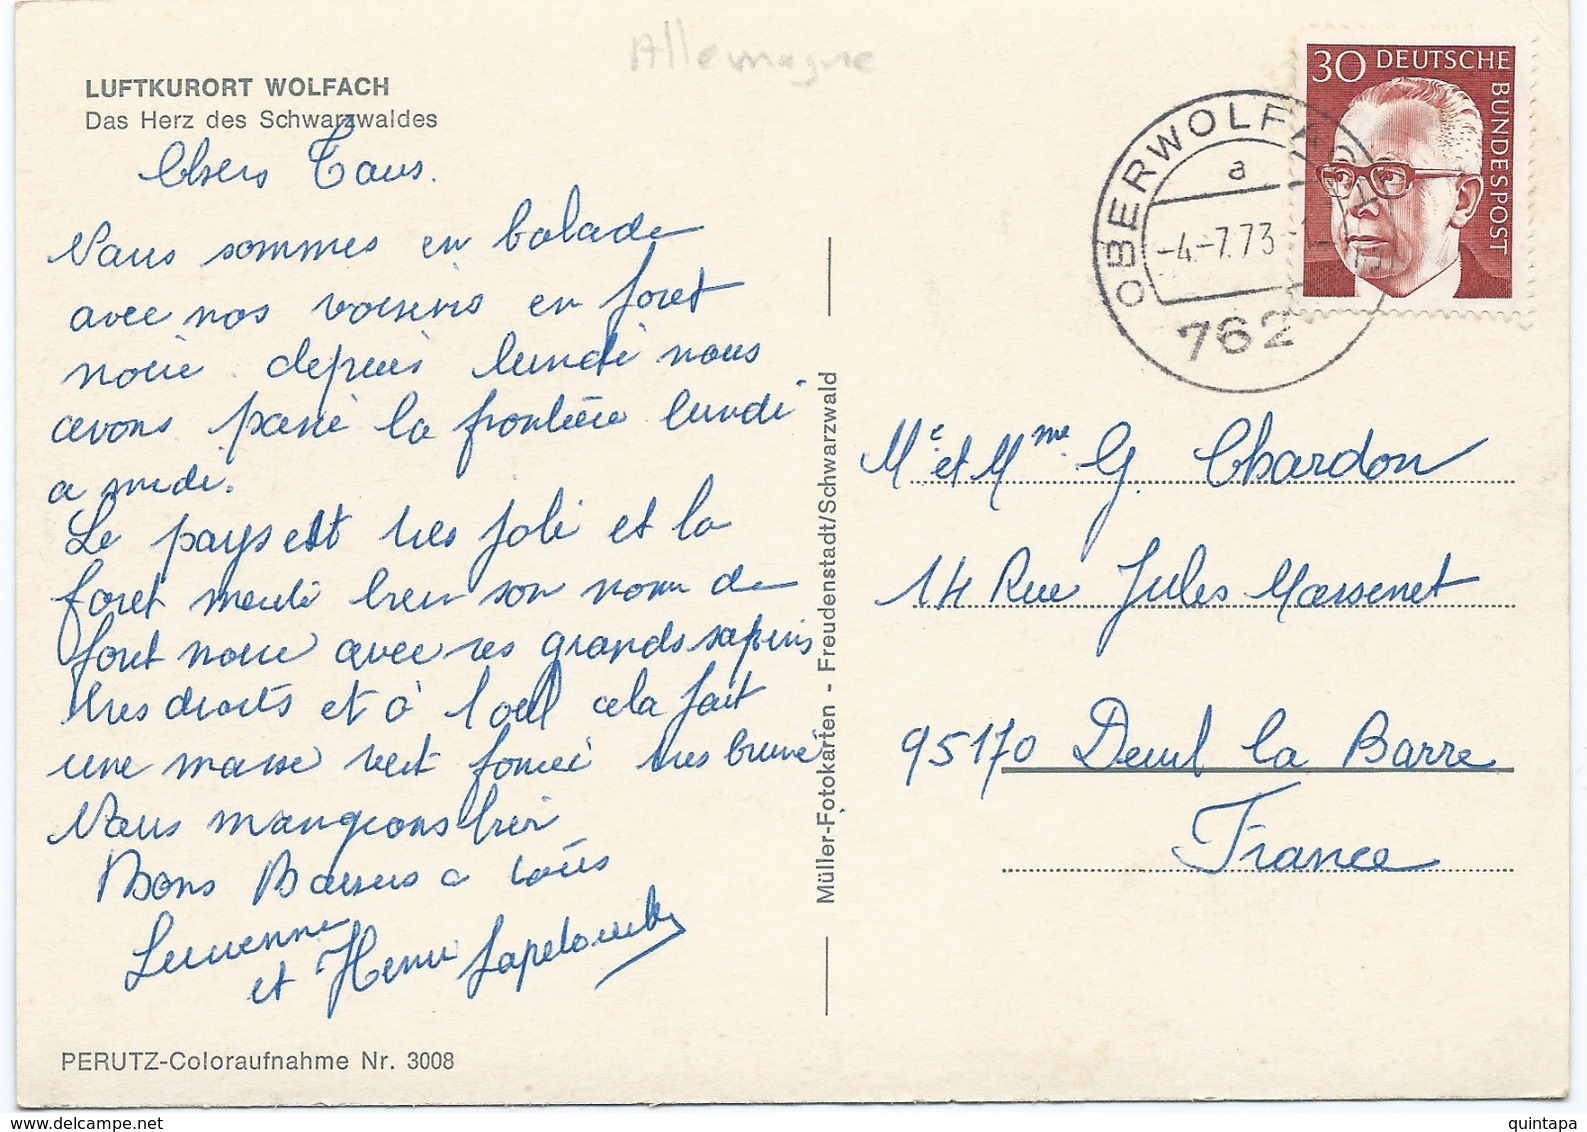 Allemagne
LUFTKURORT WOLFACH
Das Herz des Schwarzwaldes
Chers Tous.
Nous sommes en balade
avec nos voisins en foret
noire depuis lundi nous
avons passé la frontière lundi
a midi.
Le pays est tres joli et la
foret merite bien son nom de
foret noire avec ses grands sapins
tres droits et à l'oeil cela fait
une masse vert foncé tres brune
Nous mangeons bien
Bons Baisers a tous
et Henri
PERUTZ-Coloraufnahme Nr. 3008
Müller-Fotokarten - Freudenstadt/Schwarzwald
30 DEUTSCHE BUNDESPOST
OBERWOLFACH
a
-4.-7.73-
762
Mr et Mme G. Chardon
14 Rue Jules Massenet
95170 Deuil la Barre
France
www.delcampe.net
quintapa